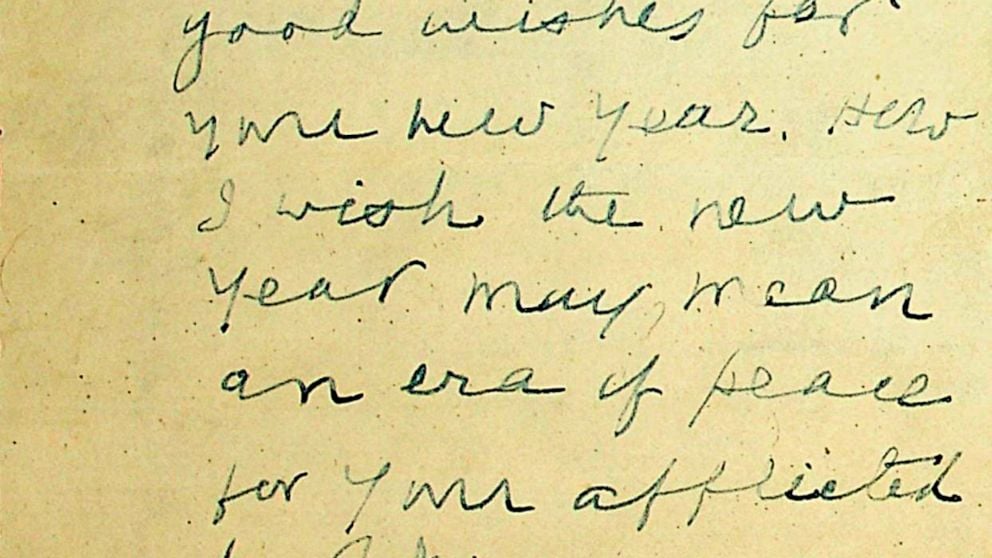 good wishes for
your new year. How
I wish the new
year may mean
an era of peace
for your afflicted